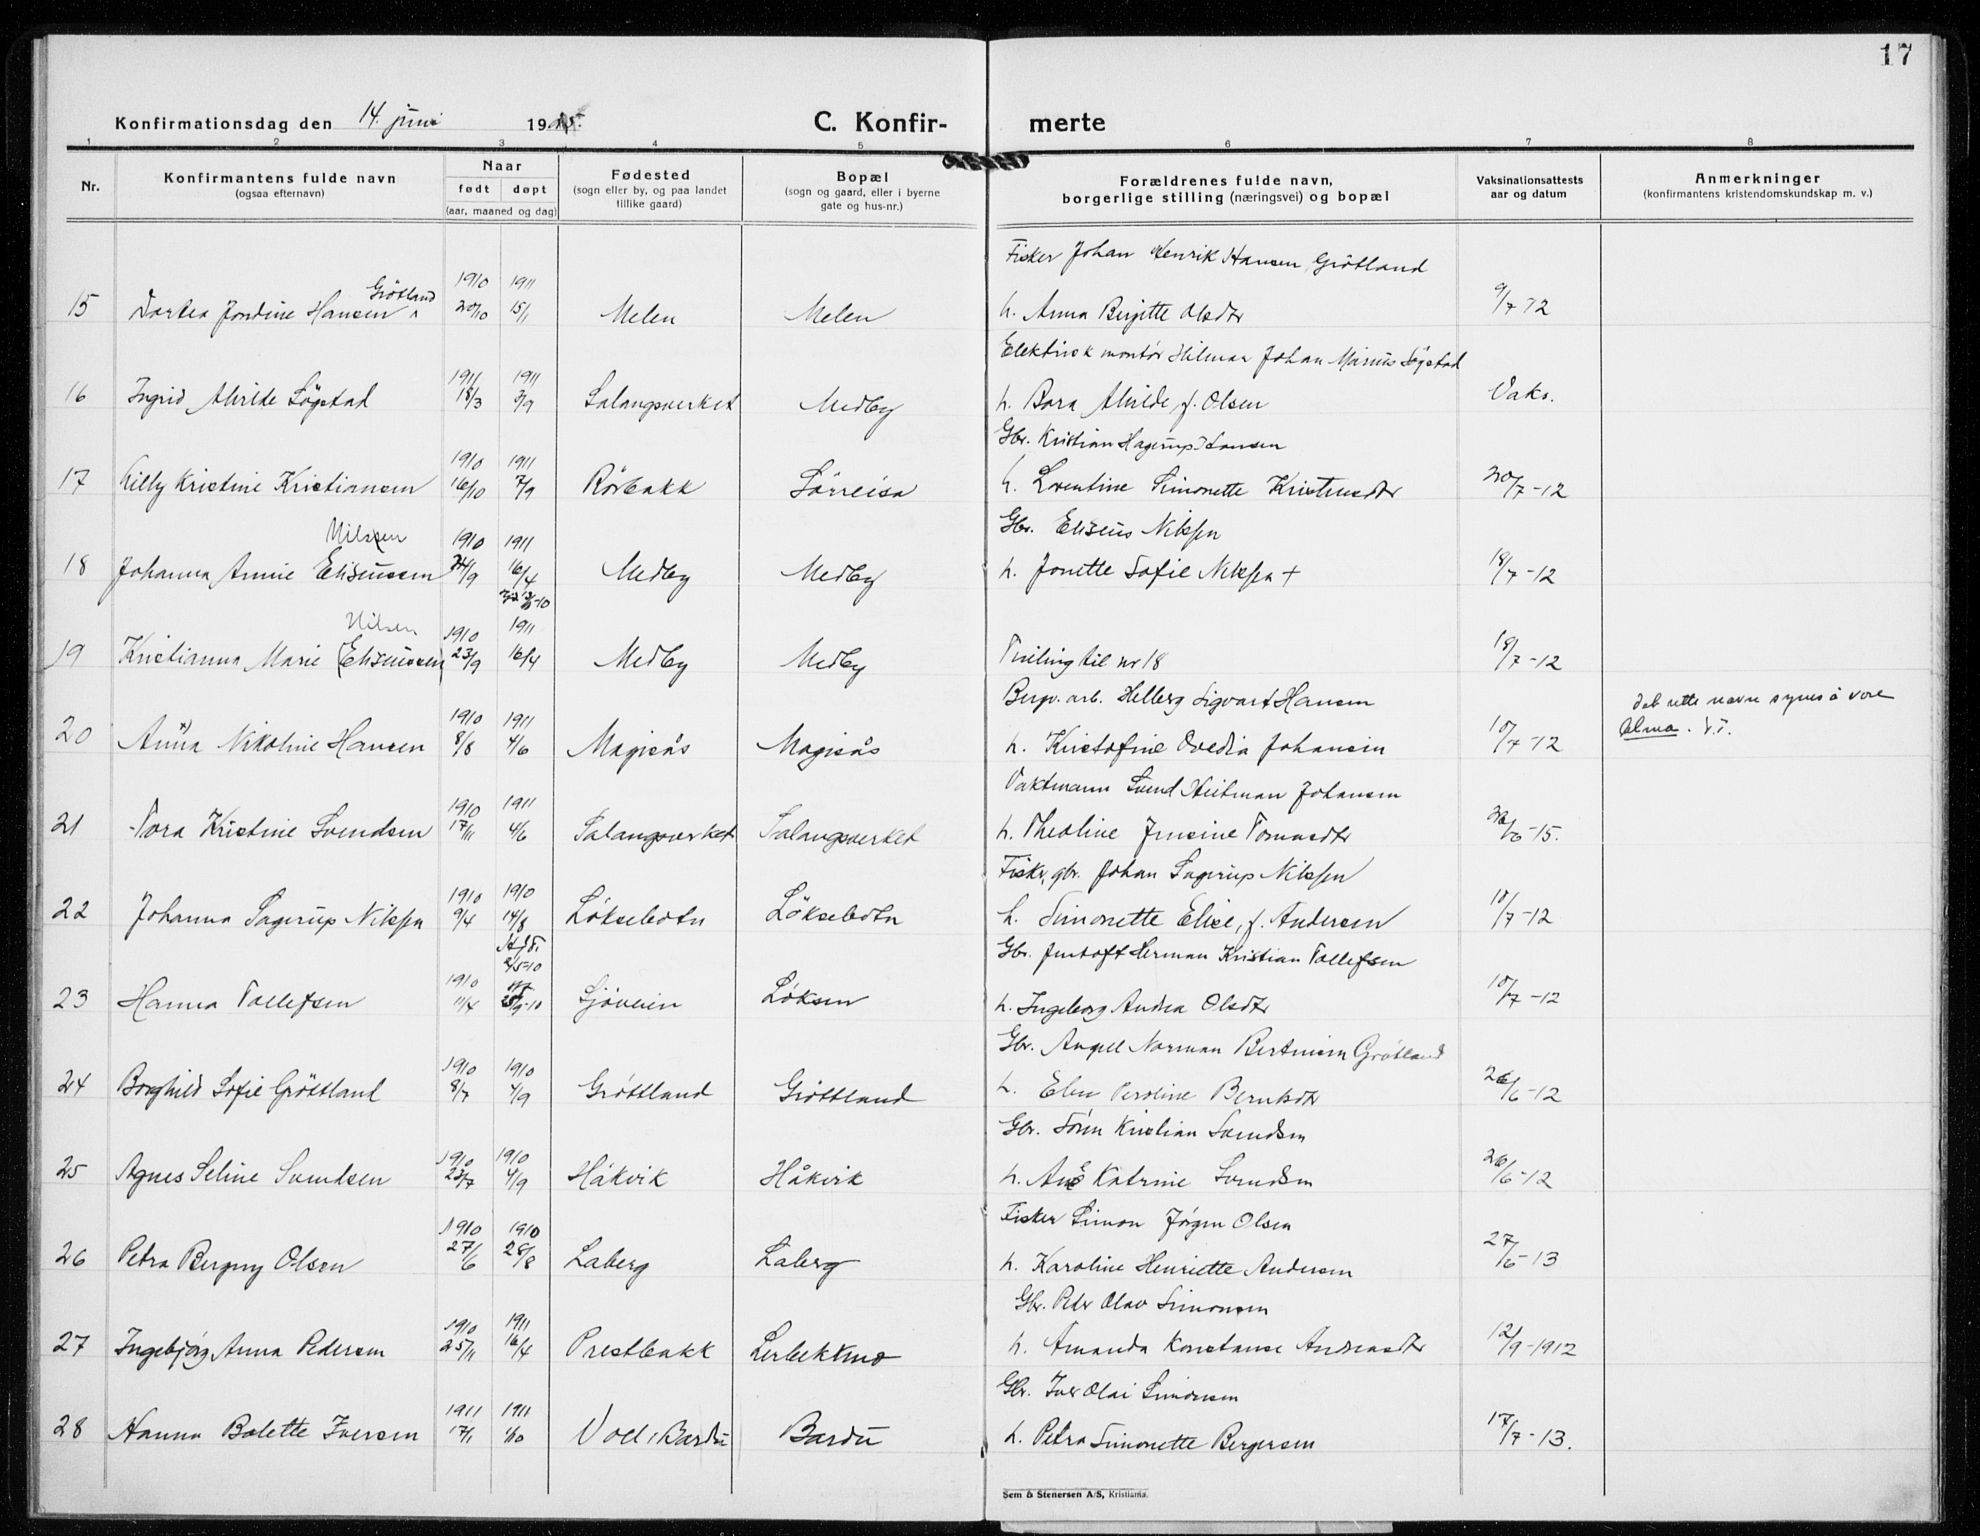 17
Konfirmationsdag den 14. juni 1925.
C. Konfir-
merte
1 2 3 4 5 6 7 8
Nr.
Konfirmantens fulde navn
(ogsaa efternavn)
Naar
født døpt
(aar, maaned og dag)
Fødested
(sogn eller by, og paa landet
tillike gaard)
Bopæl
(sogn og gaard, eller i byerne
gate og hus-nr.)
Forældrenes fulde navn,
borgerlige stilling (næringsvei) og bopæl
Vaksinationsattests
aar og datum
Anmerkninger
(konfirmantens kristendomskundskap m. v.)
Grötland 1910 1911 Fisker Johan Henrik Hansen, Grötland
15 Dortea Jordine Hansen 20/10 15/1 Melen Melen h. Anna Birgitte Olsdtr 9/7 12
1911 1911 Elektrisk montör Hilmar Johan Marius Lögstad
16 Ingrid Alvilde Lögstad 18/3 3/9 Salangsverket Medby h. Bora Alvilde, f. Olsen Vaks.
1910 1911 Gbr. Kristian Hagerup Hansen
17 Lilly Kristine Kristiansen 16/10 7/9 Rörbakk Sörreisa h. Lorentine Simonette Kristensdtr 20/7-12
Nilssen 1910 1911 Gbr. Eliseus Nilsen
18 Johanna Annie Eliseussen 24/9 16/4 Medby Medby h. Jonette Sofie Nilsen + 18/7-12
Nilsen 1910 1911
19 Kristianna Marie (Eliseussen) 23/9 16/4 Medby Medby Tvilling til nr 18 18/7-12
1910 1911 Bergv. arb. Helberg Sigvart Hansen det rette navn synes å være
20 Anna Nikoline Hansen 8/8 4/6 Magisås Magisås h. Kristofine Ovedia Johansen 10/7-12 Alma.
1910 1911 Vaktmann Svend Heitman Johansen
21 Tora Kristine Svendsen 17/11 4/6 Salangsverket Salangsverket h. Theoline Jensine Tomasdtr 26/6-15.
1910 1910 Fisker, gbr. Johan Sagerup Nilsen
22 Johanna Sagerup Nilsen 9/4 14/8 Löksebotn Löksebotn h. Simonette Elise, f. Andersen 10/7-12
Hjd. 2/5-10 Gbr. Justoft Herman Kristian Tollefsen
23 Hanna Tollefsen 1910 11/4 25/9-10 Sjöveien Löksen h. Ingeborg Andrea Olsdtr 10/7-12
1910 1910 Gbr. Angell Norman Bertinsen Gröttland
24 Borghild Sofie Gröttland 8/7 4/9 Gröttland Gröttland h. Elen Peroline Berntsdtr 26/6-12
1910 1910 Gbr. Sören Kristian Svendsen
25 Agnes Seline Svendsen 23/7 4/9 Håkvik Håkvik h. Ane Katrine Svendsen 26/6-12
1910 1910 Fisker Simon Jörgen Olsen
26 Petra Bergny Olsen 27/6 28/8 Laberg Laberg h. Karoline Henriette Andersen 27/6-13
1910 1911 Gbr. Peder Olav Simonsen
27 Ingebjörg Anna Pedersen 25/11 16/4 Prestbakk Lerbekkmo h. Amanda Konstanse Andreasdtr 12/9-1912
1911 1911 Gbr. Iver Olai Simonsen
28 Hanna Bolette Iversen 17/1 1/10 Voll i Bardu Bardu h. Petra Simonette Bergersen 17/7-13.
Sem & Stenersen A/S, Kristiania.